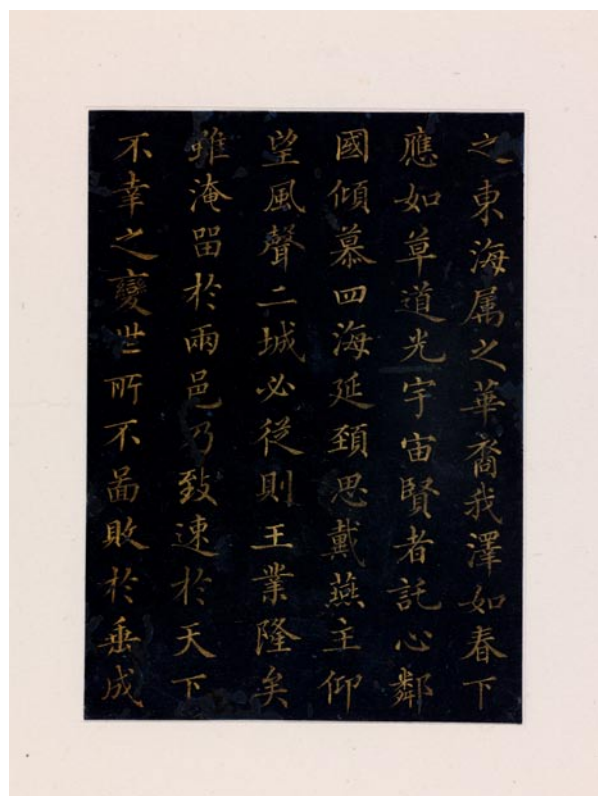 之東海属之華裔我澤如春下
應如草道光宇宙賢者託心鄰
國傾慕四海延頚思戴燕主仰
望風聲二城必従則王業隆矣
雖淹留於兩邑乃致速於天下
不幸之變世所不啚敗於垂成